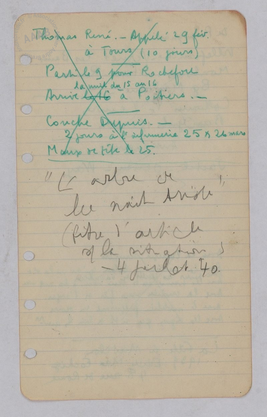 Thomas René. - Appelé 29 fév
à Tours (10 jours)
Part le 9 pour Rochefort
la nuit du 15 au 16
Arrive le 16 à Poitiers. -
Couche
2 jours à l'infirmerie 25 & 26 mars
Maux de tête le 25.
"L'arbre de
la nuit
(titre d'article
situation)
- 4 juillet 40